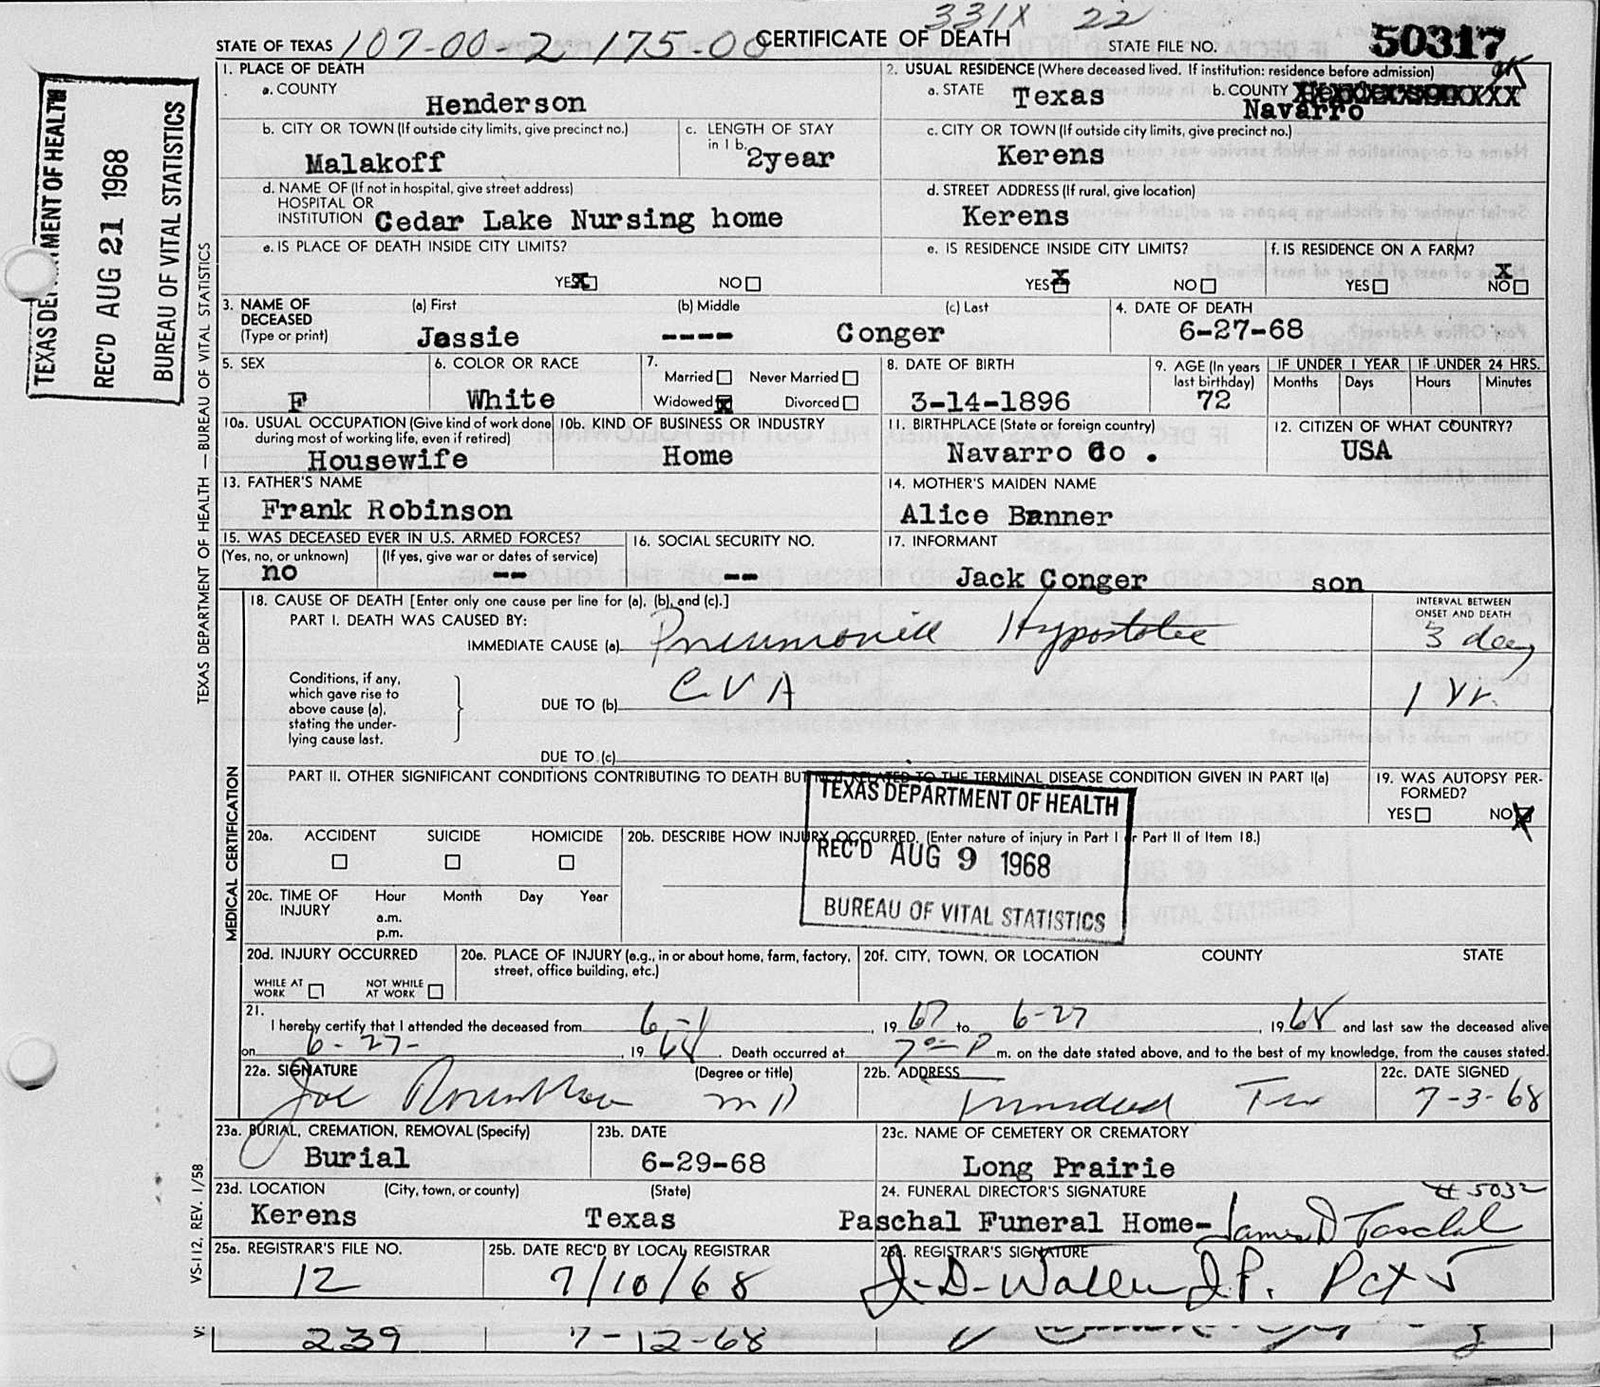 331X 22
STATE OF TEXAS 107-00-2 175-00 CERTIFICATE OF DEATH STATE FILE NO. 50317
1. PLACE OF DEATH
a. COUNTY
Henderson
2. USUAL RESIDENCE (Where deceased lived. If institution: residence before admission)
a. STATE Texas b. COUNTY
Navarro
b. CITY OR TOWN (If outside city limits, give precinct no.)
Malakoff
c. LENGTH OF STAY
in 1 b.
2year
c. CITY OR TOWN (If outside city limits, give precinct no.)
Kerens
d. NAME OF (If not in hospital, give street address)
HOSPITAL OR
INSTITUTION Cedar Lake Nursing home
d. STREET ADDRESS (If rural, give location)
Kerens
e. IS PLACE OF DEATH INSIDE CITY LIMITS?
YES X NO
e. IS RESIDENCE INSIDE CITY LIMITS?
YES X NO
f. IS RESIDENCE ON A FARM?
YES NO X
3. NAME OF DECEASED (Type or print)
(a) First (b) Middle (c) Last
Jessie ---- Conger
4. DATE OF DEATH
6-27-68
5. SEX
F
6. COLOR OR RACE
White
7.
Married Never Married
Widowed X Divorced
8. DATE OF BIRTH
3-14-1896
9. AGE (In years
last birthday)
72
IF UNDER 1 YEAR IF UNDER 24 HRS.
Months Days Hours Minutes
10a. USUAL OCCUPATION (Give kind of work done
during most of working life, even if retired)
Housewife
10b. KIND OF BUSINESS OR INDUSTRY
Home
11. BIRTHPLACE (State or foreign country)
Navarro Co .
12. CITIZEN OF WHAT COUNTRY?
USA
13. FATHER'S NAME
Frank Robinson
14. MOTHER'S MAIDEN NAME
Alice Banner
15. WAS DECEASED EVER IN U.S. ARMED FORCES?
(Yes, no, or unknown) (If yes, give war or dates of service)
no --
16. SOCIAL SECURITY NO.
--
17. INFORMANT
Jack Conger son
18. CAUSE OF DEATH [Enter only one cause per line for (a), (b), and (c).]
PART I. DEATH WAS CAUSED BY:
IMMEDIATE CAUSE (a) Pneumonia Hypostatic
INTERVAL BETWEEN
ONSET AND DEATH
3 day
Conditions, if any,
which gave rise to
above cause (a),
stating the under-
lying cause last.
DUE TO (b) CVA
1 yr.
DUE TO (c)
PART II. OTHER SIGNIFICANT CONDITIONS CONTRIBUTING TO DEATH BUT NOT RELATED TO THE TERMINAL DISEASE CONDITION GIVEN IN PART I(a)
19. WAS AUTOPSY PER-
FORMED?
YES NO X
20a. ACCIDENT SUICIDE HOMICIDE
20b. DESCRIBE HOW INJURY OCCURRED. (Enter nature of injury in Part I or Part II of Item 18.)
TEXAS DEPARTMENT OF HEALTH
REC'D AUG 9 1968
BUREAU OF VITAL STATISTICS
20c. TIME OF
INJURY
Hour Month Day Year
a.m.
p.m.
20d. INJURY OCCURRED
WHILE AT
WORK
NOT WHILE
AT WORK
20e. PLACE OF INJURY (e.g., in or about home, farm, factory,
street, office building, etc.)
20f. CITY, TOWN, OR LOCATION COUNTY STATE
21.
I hereby certify that I attended the deceased from 6-1, 1967 to 6-27, 1968 and last saw the deceased alive
on 6-27-, 1968. Death occurred at 7:00 P m. on the date stated above, and to the best of my knowledge, from the causes stated.
22a. SIGNATURE (Degree or title)
Joe MD
22b. ADDRESS
22c. DATE SIGNED
7-3-68
23a. BURIAL, CREMATION, REMOVAL (Specify)
Burial
23b. DATE
6-29-68
23c. NAME OF CEMETERY OR CREMATORY
Long Prairie
23d. LOCATION (City, town, or county) (State)
Kerens Texas
24. FUNERAL DIRECTOR'S SIGNATURE # 5032
Paschal Funeral Home- James D Paschal
25a. REGISTRAR'S FILE NO.
12
25b. DATE REC'D BY LOCAL REGISTRAR
7/10/68
REGISTRAR'S SIGNATURE
J.P. Pct 5
239 7-12-68
TEXAS DEPARTMENT OF HEALTH
REC'D AUG 21 1968
BUREAU OF VITAL STATISTICS
TEXAS DEPARTMENT OF HEALTH — BUREAU OF VITAL STATISTICS
MEDICAL CERTIFICATION
VS-112, REV. 1/58